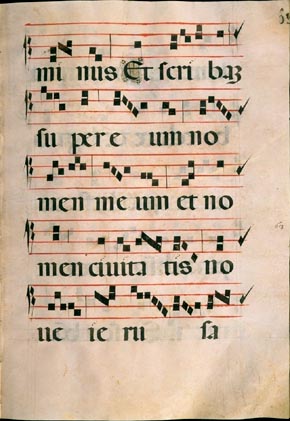 mi nus Et scri baʒ
su per e um no
men me um et no
men ciuita tis no
ue ie ru sa